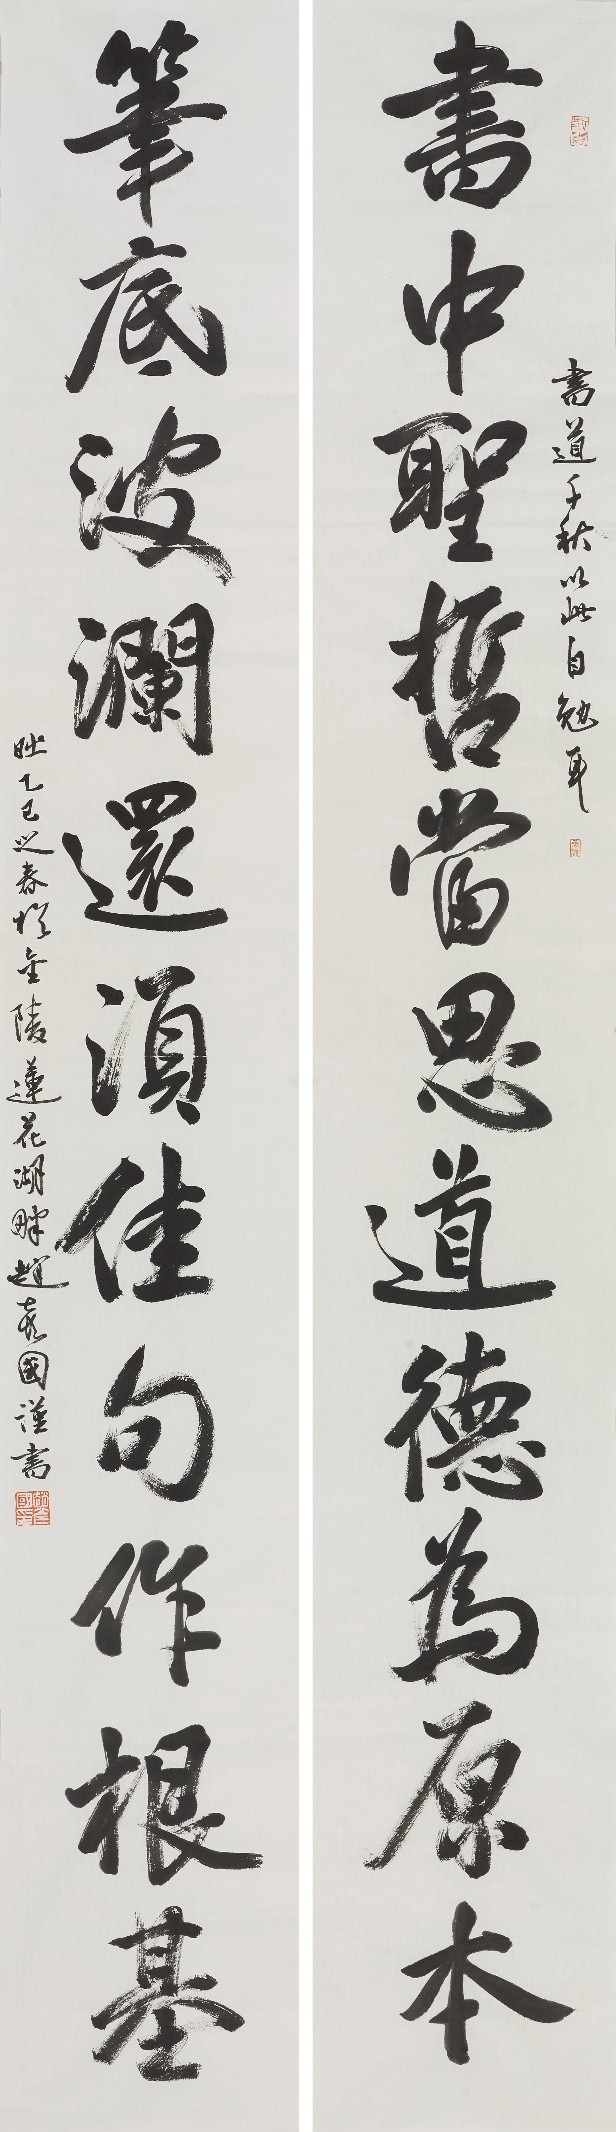 書道千秋以此自勉耳
書中聖哲當思道德為原本
筆底波瀾還須佳句作根基
時乙巳之春於金陵蓮花湖畔趙国謹書